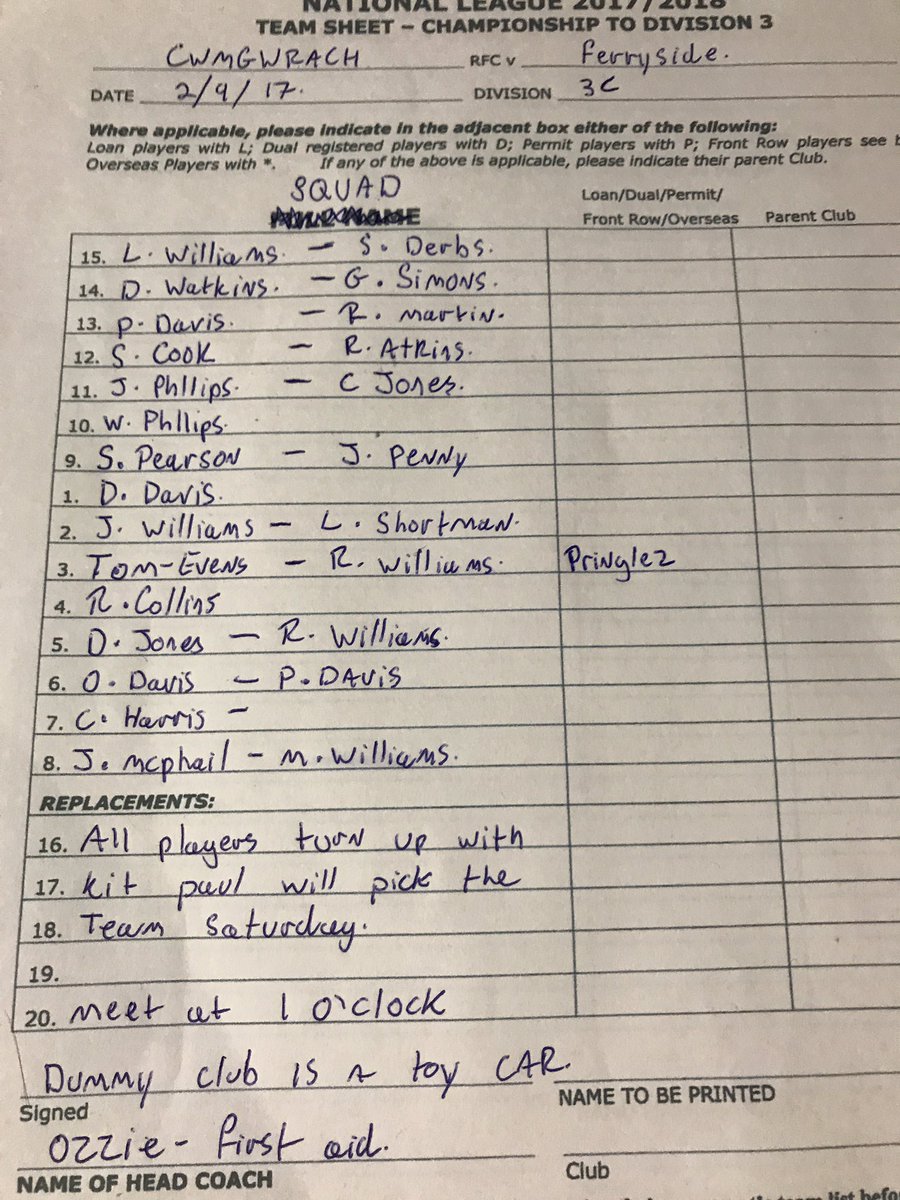 NATIONAL LEAGUE 2017/2018
TEAM SHEET – CHAMPIONSHIP TO DIVISION 3
CWMGWRACH RFC v Ferryside.
DATE 2/9/17. DIVISION 3C
Where applicable, please indicate in the adjacent box either of the following:
Loan players with L; Dual registered players with D; Permit players with P; Front Row players see b
Overseas Players with *. If any of the above is applicable, please indicate their parent Club.
SQUAD
Loan/Dual/Permit/
Front Row/Overseas Parent Club
15. L. Williams. – S. Derbs.
14. D. Watkins. – G. Simons.
13. P. Davis. – R. Martin.
12. S. Cook – R. Atkins.
11. J. Phllips. – C Jones.
10. W. Phllips.
9. S. Pearson – J. Penny
1. D. Davis.
2. J. Williams – L. Shortman.
3. Tom-Evens – R. Williams. Pringlez
4. R. Collins
5. D. Jones – R. Williams.
6. O. Davis – P. DAVIS
7. C. Harris –
8. J. mcphail – M. Williams.
REPLACEMENTS:
16. All players turn up with
17. kit paul will pick the
18. Team Saturday.
19.
20. meet at 1 o'clock
Dummy club is a toy CAR.
Signed NAME TO BE PRINTED
Ozzie – first aid.
NAME OF HEAD COACH Club
team list before